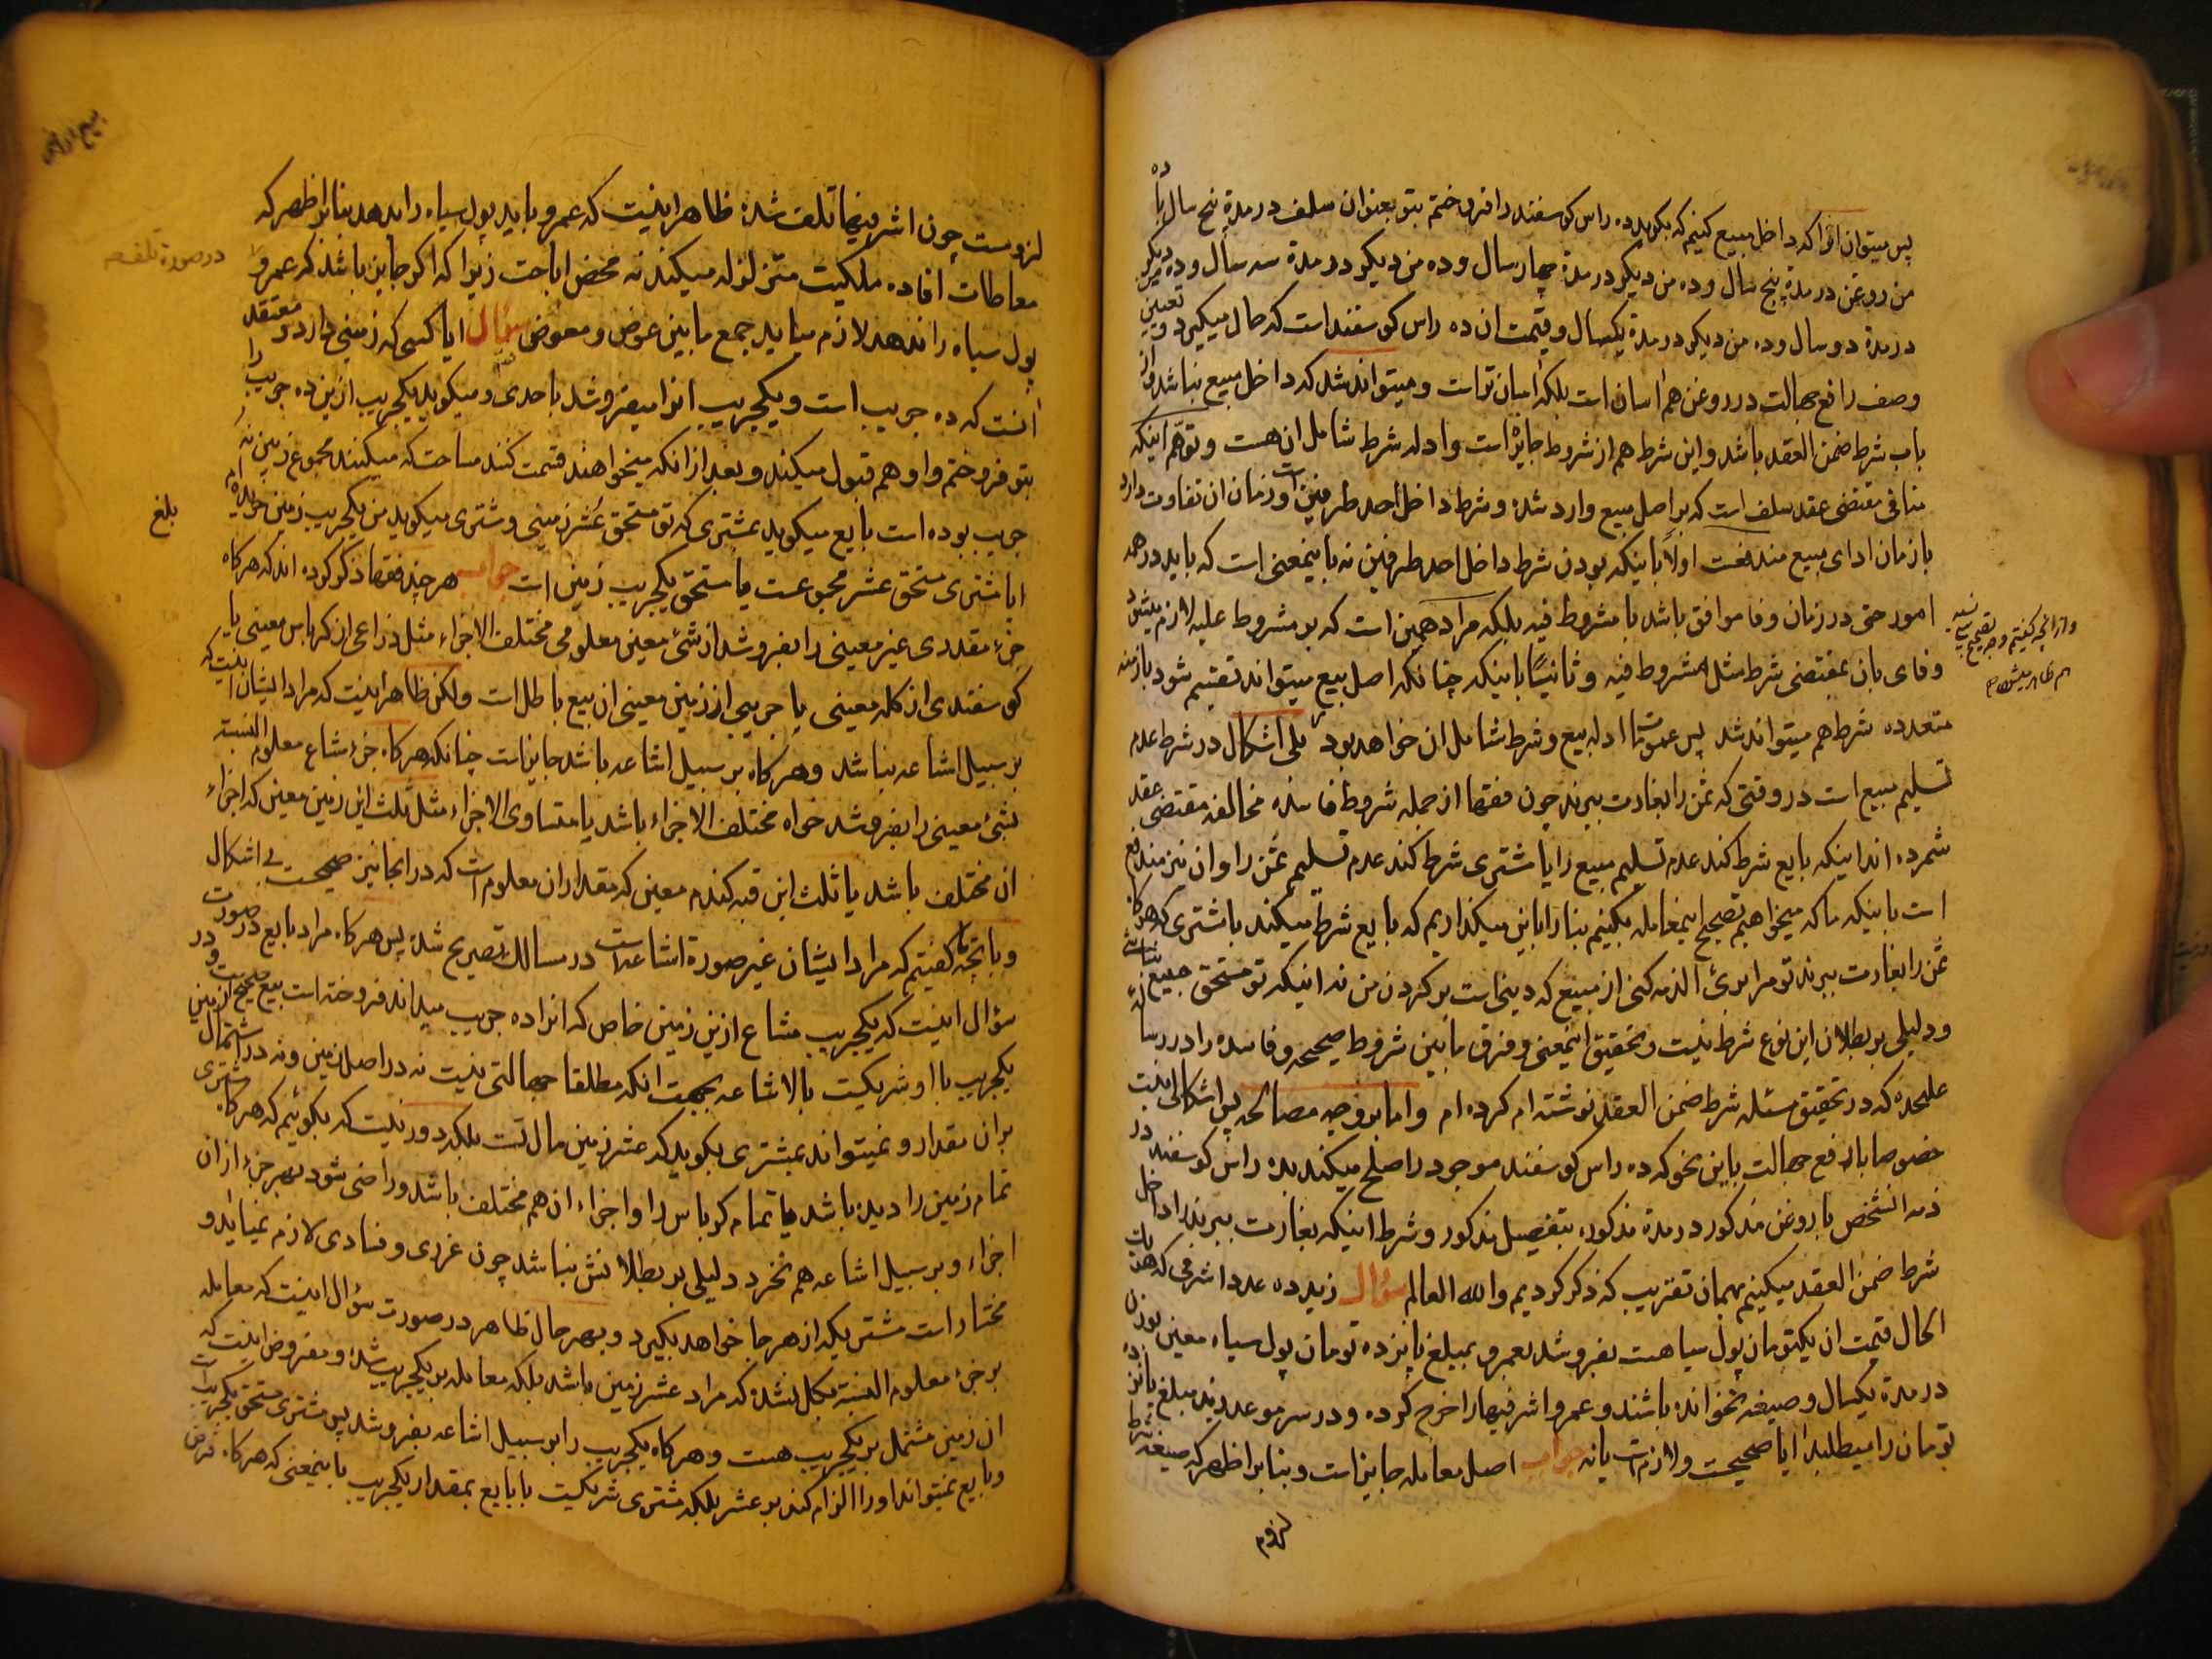 پس میتوان انرا که داخل مبیع کنیم که بکوید ده راس کوسفند را فروختم بتو بعنوان سلف در مدة پنج سال با ده
من روغن در مدة پنج سال و ده من دیکر در مدة چهار سال و ده من دیکر در مدة سه سال و ده من دیکر
در مدة دو سال و ده من دیکر در مدة یکسال و قیمت ان ده راس کوسفند است که حال میکیرد و تعیین
وصف رافع جهالت در روغن هم اسان است بلکه اسان تر است و میتواند شد که داخل مبیع نباشد و از
باب شرط ضمن العقد باشد و این شرط هم از شروط جایزه است و ادله شرط شامل ان هست و توهم اینکه
منافی مقتضی عقد سلف است که بر اصل مبیع وارد شده و شرط داخل احد طرفین است و زمان ان تفاوت دارد
با زمان ادای مبیع مندفعست اولا باینکه بودن شرط داخل احد طرفین نه باینمعنی است که باید در همه
امور حتی در زمان وفا موافق باشد با مشروط فیه بلکه مراد همین است که بر مشروط علیه لازم میشود
وفای بان بمقتضی شرط مثل مشروط فیه و ثانیا باینکه چنانکه اصل بیع میتواند تقسیم شود بازمنه
متعدده شرط هم میتواند شد پس عمومات ادله بیع و شرط شامل ان خواهد بود بلی اشکال در شرط عدم
تسلیم مبیع است در وقتی که ثمن را بغارت ببرند چون فقها از جمله شروط فاسده مخالفه مقتضی عقد
شمرده اند اینکه بایع شرط کند عدم تسلیم مبیع را یا مشتری شرط کند عدم تسلیم ثمن را و ان نیز مندفع
است باینکه ما که میخواهیم تصحیح اینمعامله بکنیم بنا را باین میکذاریم که بایع شرط میکند با مشتری که هرکاه
ثمن را بغارت ببرند تو مرا بریٔ الذمه کنی از مبیع که دینی است بر کردن من نه اینکه تو مستحق مبیع نباشی
و دلیلی بر بطلان این نوع شرط نیست و تحقیق اینمعنی و فرق مابین شروط صحیحه و فاسده را در رسالة
علیحده که در تحقیق مسئله شرط ضمن العقد نوشته ام کرده ام و اما بر وجه مصالحه پس اشکالی نیست
خصوصا با رفع جهالت باین نحو که ده راس کوسفند موجود را صلح میکند بده راس کوسفند در
ذمه انشخص با روغن مذکور در مدة مذکوره بتفصیل مذکور و شرط اینکه بغارت ببرند را داخل
شرط ضمن العقد میکنیم بهمان تقریب که ذکر کردیم والله العالم سؤال زید ده عدد اشرفی که هریک
الحال قیمت ان یکتومان پول سیاهست بفروشد بعمرو بمبلغ پانزده تومان پول سیاه معین بوزن
در مدة یکسال و صیغه نخوانده باشند و عمرو اشرفیها را خرج کرده و در سر موعد زید مبلغ پانزده
تومان را میطلبد ایا صحیحست و لازم است یا نه جواب اصل معامله جایز است و بنابر اظهر که صیغه شرط
لزوم
لزومست چون اشرفیها تلف شده ظاهر اینست که عمرو باید پول سیاه را بدهد بنابر اظهر که
معاطات افاده ملکیت متزلزله میکند نه محض اباحت زیرا که اکر جایز باشد که عمرو
پول سیاه را ندهد لازم میاید جمع مابین عوض و معوض سؤال ایا کسی که زمینی دارد و معتقد
انست که ده جریب است و یکجریب انرا میفروشد باحدی و میکوید یکجریب ازین ده جریب را
بتو فروختم و او هم قبول میکند و بعد از انکه میخواهند قسمت کنند مساحت که میکنند مجموع زمین نه
جریب بوده است بایع میکوید بمشتری که تو مستحق عشر زمینی و مشتری میکوید من یکجریب زمین خریده ام
ایا مشتری مستحق عشر مجموعست یا مستحق یکجریب زمین است جواب هر چند فقها ذکر کرده اند که هرکاه
جزء مقدری غیر معینی را بفروشد از شئ معین معلومی مختلف الاجزاء مثل ذراعی از کرباس معینی یا
کوسفندی از کله معینی یا جریبی از زمین معینی ان بیع باطل است و لکن ظاهر اینست که مراد ایشان اینست که
بر سبیل اشاعه نباشد و هرکاه بر سبیل اشاعه باشد جایز است چنانکه هرکاه جزء مشاع معلوم النسبة
بشئ معینی را بفروشد خواه مختلف الاجزاء باشد یا متساوی الاجزاء مثل ثلث این زمین معین که اجزاء
ان مختلف باشد یا ثلث این قبه کندم معین که مقدار ان معلوم است که در انجا نیز صحیحست بی اشکال
و بانچه کفتیم که مراد ایشان غیر صورة اشاعه است در مسالک تصریح شده پس هرکاه مراد بایع در صورت
سؤال اینست که یکجریب مشاع ازین زمین خاص که انرا ده جریب میداند فروخته است بیع صحیح است و در
یکجریب با او شریکست بالاشاعه بجهت انکه مطلقا جهالتی نیست نه در اصل زمین و نه در اشتمال زمین
بر ان مقدار و نمیتواند بمشتری بکوید که عشر زمین مال تست بلکه دور نیست که بکوئیم که هرکاه مشتری
تمام زمین را دیده باشد یا تمام کرباس را و اجزاء ان هم مختلف باشد و راضی شود بهر جزء از ان
اجزاء و بر سبیل اشاعه هم نخرد دلیلی بر بطلانش نباشد چون غرری و فسادی لازم نمیاید و
مختار است مشتری که از هر جا خواهد بکیرد و بهر حال ظاهر در صورت سؤال اینست که معامله
بر جزء معلوم النسبة بکل نشده که مراد عشر زمین باشد بلکه معامله بر یکجریب شده و مفروض اینست که
ان زمین مشتمل بر یکجریب هست و هرکاه یکجریب را بر سبیل اشاعه بفروشد پس مشتری مستحق یکجریب است
و بایع نمیتواند او را الزام کند بر عشر بلکه مشتری شریکست با بایع بمقدار یکجریب باینمعنی که هرکاه فرض
در صورة تلف
بلغ